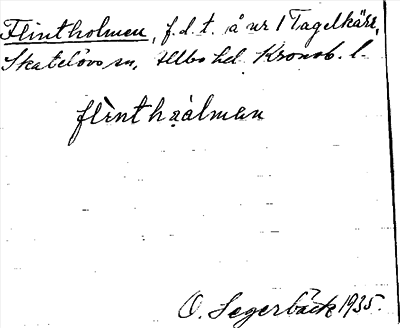 Flintholmen, f.d.t. å nr 1 Tagelkärr,
Skatelövs sn, Allbo hd. Kronob. l.
flìnthalman
O. Segerbäck 1935.